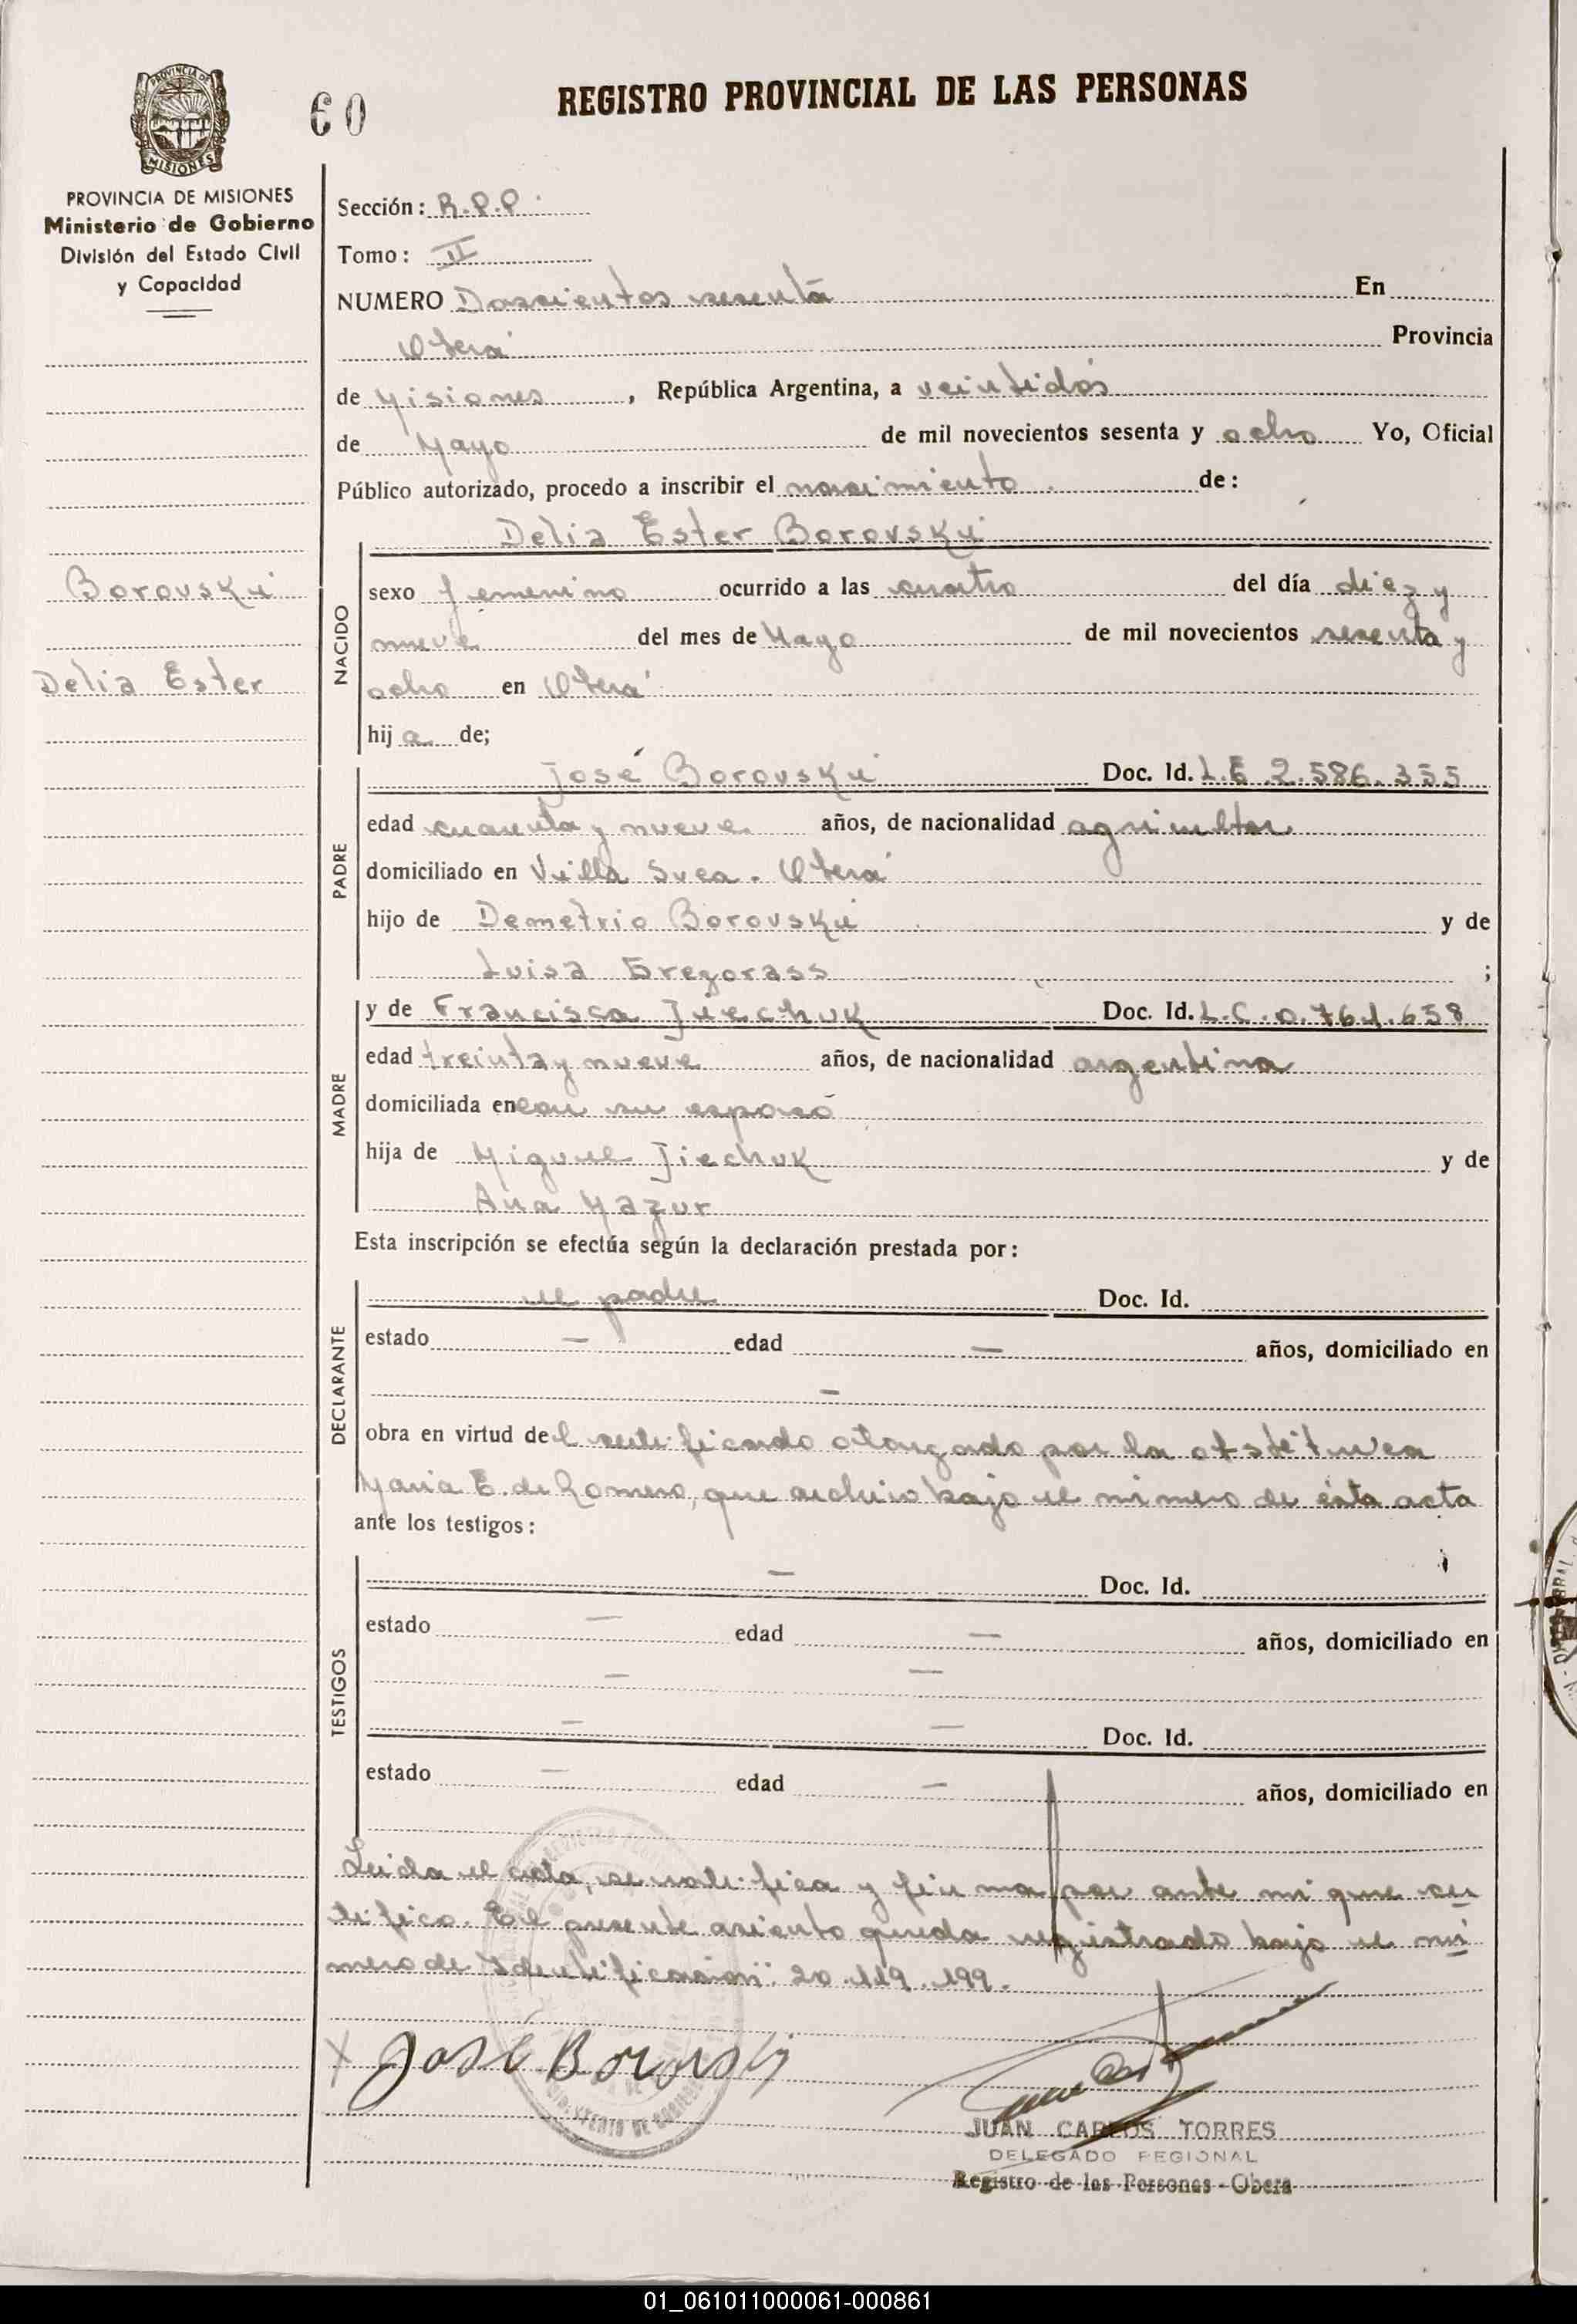 60
REGISTRO PROVINCIAL DE LAS PERSONAS
PROVINCIA DE MISIONES
MISIONES
PROVINCIA DE MISIONES
Ministerio de Gobierno
División del Estado Civil
y Capacidad
Borovski
Delia Ester
Sección: R.P.P.
Tomo: II
NUMERO Doscientos sesenta En
Oberá Provincia
de Misiones, República Argentina, a veintidós
de Mayo de mil novecientos sesenta y ocho Yo, Oficial
Público autorizado, procedo a inscribir el nacimiento de:
Delia Ester Borovski
NACIDO
sexo femenino ocurrido a las cuatro del día diez y
nueve del mes de Mayo de mil novecientos sesenta y
ocho en Oberá
hija de;
PADRE
José Borovski Doc. Id. L.E 2.586.355
edad cuarenta y nueve años, de nacionalidad agricultor
domiciliado en Villa Svea. Oberá
hijo de Demetrio Borovski y de
Luisa Gregorass ;
MADRE
y de Francisca Jiechuk Doc. Id. L.C. 0.761.658
edad treinta y nueve años, de nacionalidad argentina
domiciliada en con su esposo
hija de Miguel Jiechuk y de
Ana Mazur
Esta inscripción se efectúa según la declaración prestada por:
DECLARANTE
el padre Doc. Id.
estado — edad — años, domiciliado en
—
obra en virtud del certificado otorgado por la obstétrica
María E. de Romero, que archivo bajo el número de ésta acta
ante los testigos:
TESTIGOS
— Doc. Id.
estado — edad — años, domiciliado en
— —
— — Doc. Id.
estado — edad — años, domiciliado en
Leída el acta, se ratifica y firma por ante mí que cer
tifico. El presente asiento queda registrado bajo el nú
mero de Identificación: 20.119.199.
X José Borovski
JUAN CARLOS TORRES
DELEGADO REGIONAL
Registro de las Personas - Oberá
01_061011000061-000861